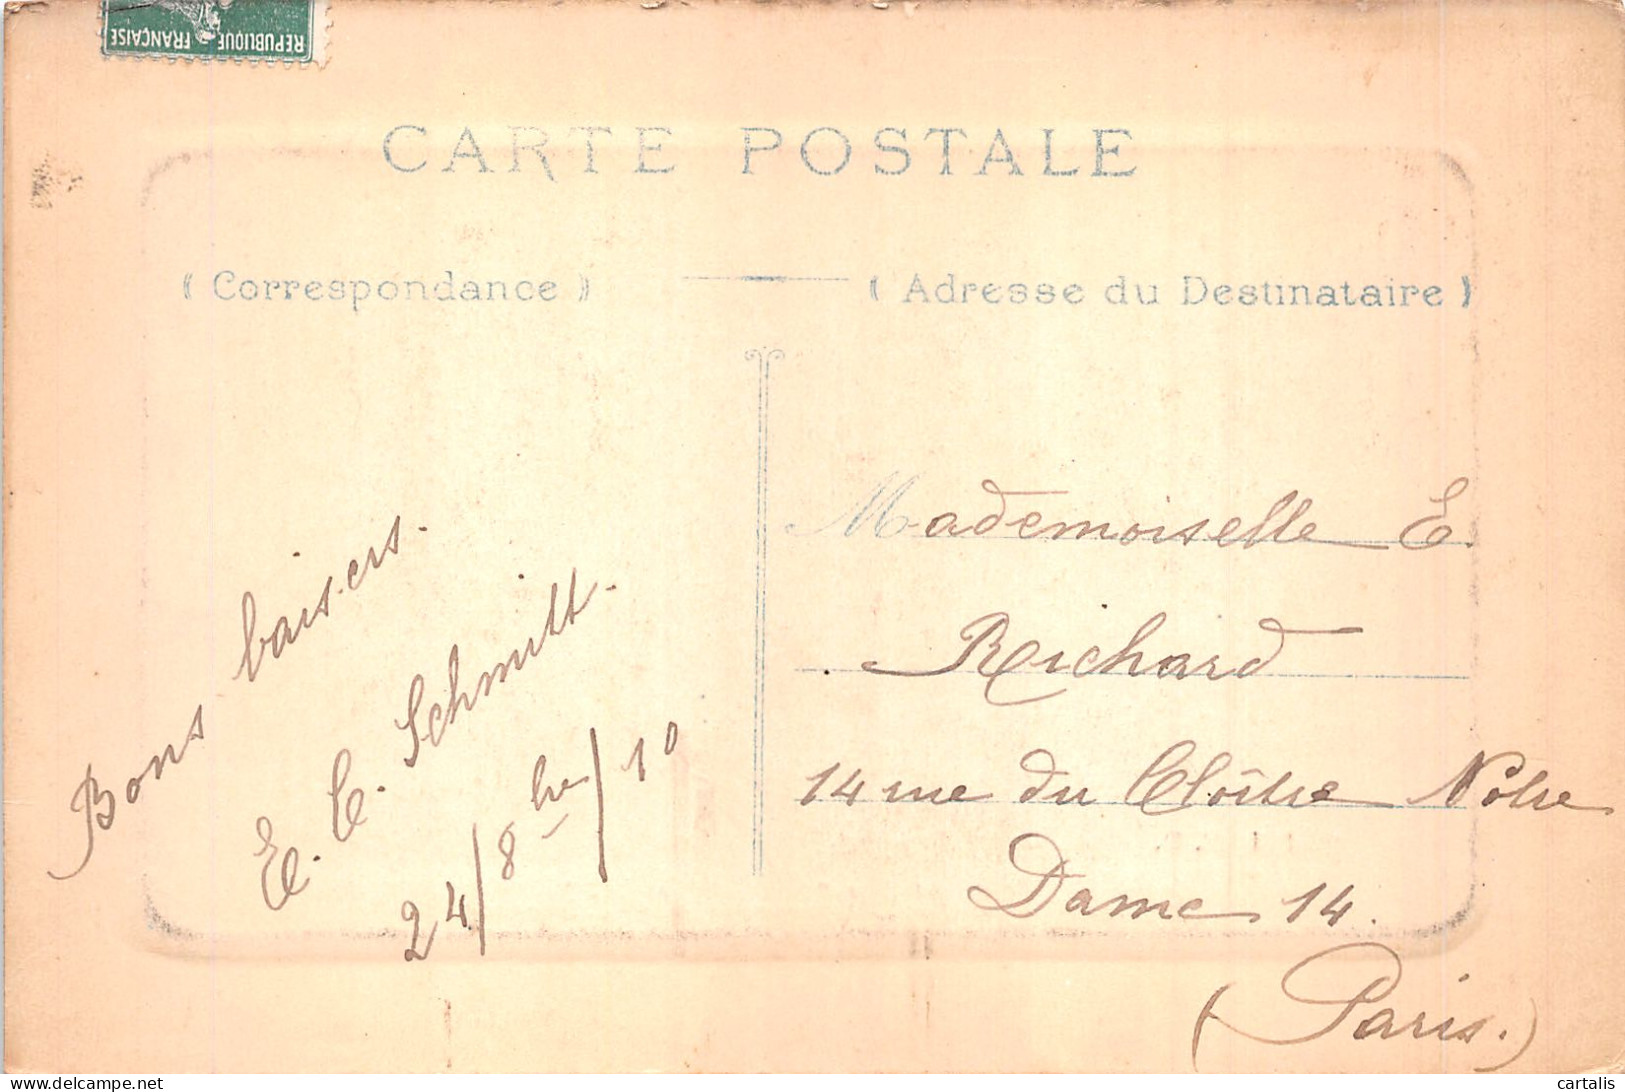 REPUBLIQUE FRANÇAISE
CARTE POSTALE
( Correspondance )
( Adresse du Destinataire )
Bons baisers.
E. C. Schmitt.
24/8bre/10
Mademoiselle E.
Richard
14 rue du Cloître Notre
Dame 14.
(Paris.)
cartalis